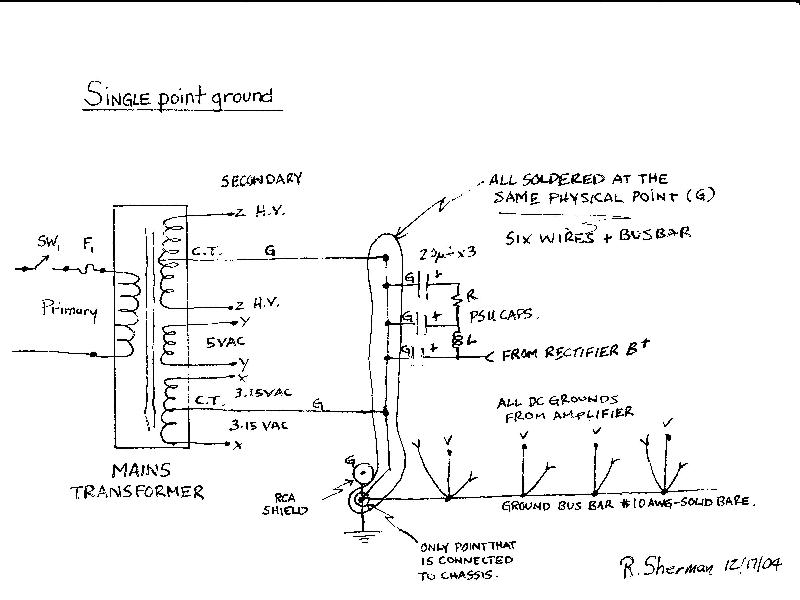 SINGLE point ground
SECONDARY
ALL SOLDERED AT THE
SAME PHYSICAL POINT (G)
SIX WIRES + BUSBAR
SW1
F1
Primary
Z H.V.
C.T.
G
Z H.V.
Y
5VAC
Y
X
3.15VAC
C.T.
G
3.15 VAC
X
G +
R
G +
PSU CAPS.
L
G +
FROM RECTIFIER B+
ALL DC GROUNDS
FROM AMPLIFIER
V V V V
MAINS
TRANSFORMER
G
RCA
SHIELD
GROUND BUS BAR #10AWG-SOLID BARE.
ONLY POINT THAT
IS CONNECTED
TO CHASSIS.
R. Sherman 12/17/04